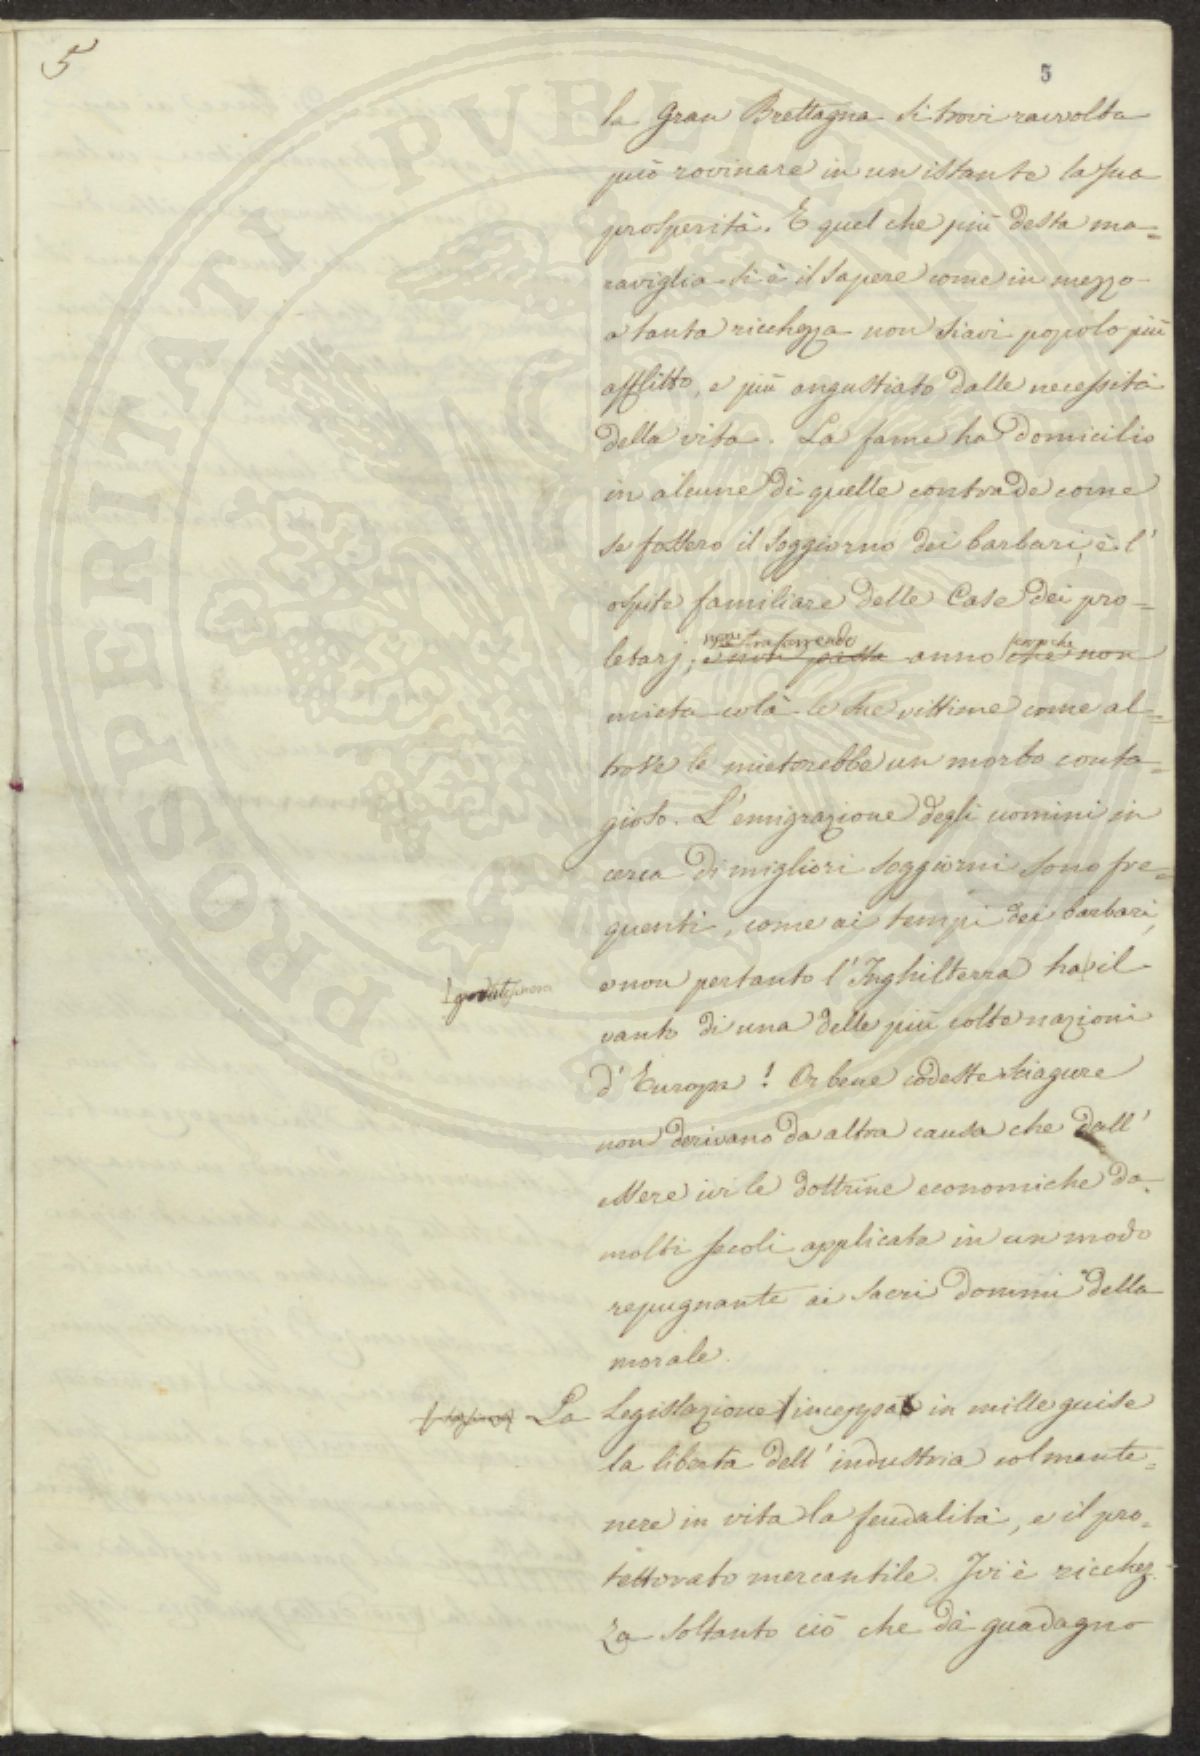 5
5
la Gran Brettagna si trovi ravvolta
può rovinare in un istante la sua
prosperità. E quel che più desta ma=
raviglia si è il sapere come in mezzo
a tanta ricchezza non siavi popolo più
afflitto, e più angustiato dalle necessità
della vita. La fame ha domicilio
in alcune di quelle contrade come
se fossero il soggiorno dei barbari, è l'
ospite familiare delle Case dei pro=
non trascorrendo senza che
letarj; e non passa anno che non
mieta colà le sue vittime come al=
trove le mieterebbe un morbo conta=
gioso. L'emigrazione degli uomini in
cerca di migliori soggiorni sono fre=
quenti, come ai tempi dei barbari,
e non pertanto l'Inghilterra ha il
vanto di una delle più colte nazioni
d'Europa! Or bene codeste sciagure
non derivano da altra causa che dall'
essere ivi le dottrine economiche da
molti secoli applicate in un modo
repugnante ai sacri dommi della
morale.
La Legislazione inceppa in mille guise
la libertà dell'industria col mante=
nere in vita la feudalità, e il pro=
tettorato mercantile. Ivi è ricchez=
za soltanto ciò che dà guadagno
PROSPERITATI PVBLICAE